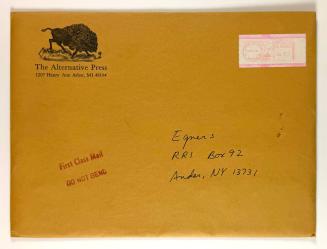 The Alternative Press
1207 Henry Ann Arbor, MI 48104
Egners
RR1 Box 92
Andes, NY 13731
First Class Mail
DO NOT BEND